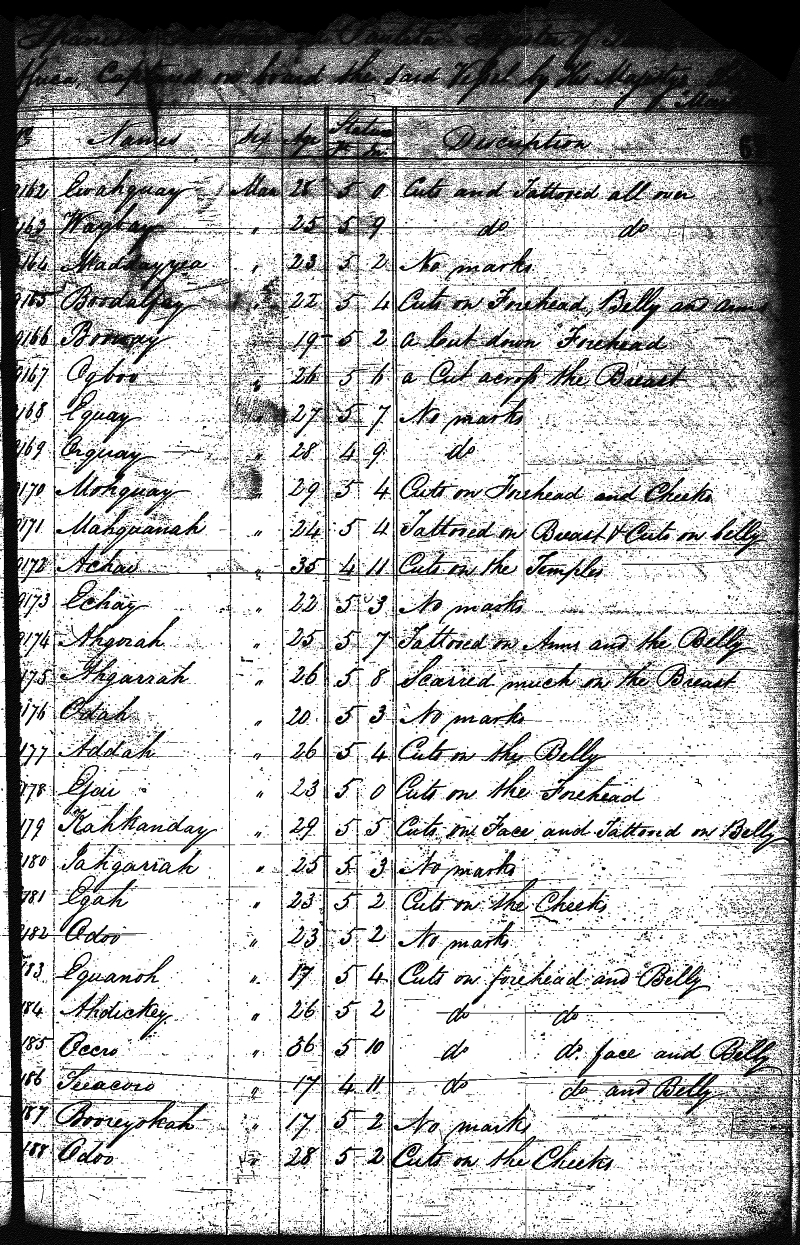 Spanish
captured on board the said Vessel by His Majestys
May
Names Sex Age Stature Description
Ft In
162 Ewahguay Man 28 5 0 Cuts and Tattored all over
163 Wagbay " 25 5 9 do do
164 " 23 5 2 No marks
165 " 22 5 4 Cuts on Forehead, Belly and Arms
166 " 19 5 2 a Cut down Forehead
167 Ogboo " 26 5 6 a Cut across the Breast
168 Equay " 27 5 7 No marks
169 Orguay " 28 4 9 do
170 Mohguay " 29 5 4 Cuts on Forehead and Cheeks
171 Mahguanah " 24 5 4 Tattored on Breast & Cuts on belly
172 Achao " 35 4 11 Cuts on the Temples
173 Echay " 22 5 3 No marks
174 Ahgozah " 25 5 7 Tattored on Arms and the Belly
175 Ahgarrah " 26 5 8 Scarred much on the Breast
176 Odah " 20 5 3 No marks
177 Addah " 26 5 4 Cuts on the Belly
178 Ejoi " 23 5 0 Cuts on the Forehead
179 Kahkanday " 29 5 5 Cuts on Face and Tattored on Belly
180 Jahgarrah " 25 5 3 No marks
181 Egah " 23 5 2 Cuts on the Cheeks
182 Odoo " 23 5 2 No marks
183 Equanoh " 17 5 4 Cuts on forehead and Belly
184 Ahdickey " 26 5 2 do do
185 Occro " 36 5 10 do do face and Belly
186 " 17 4 11 do do and Belly
187 Booreyokah " 17 5 2 No marks
188 Odoo " 28 5 2 Cuts on the Cheeks